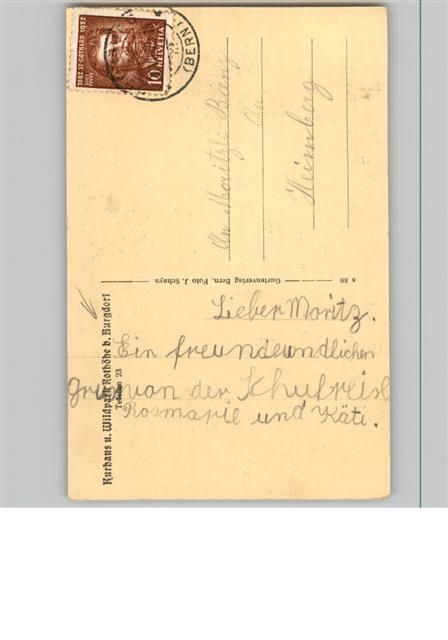 1882 ST. GOTHARD 1932
10 HELVETIA
(BERN)
An Moritzli Bienz
An
Heimberg
s 80 Gurtenverlag Bern, Foto J. Schaya
Kurhaus u. Wildpark Rothöhe b. Burgdorf
Telefon 23
Lieber Moritz.
Ein freundeundlichen
Gruss von der Schulreise
Rosmarie und Käti.